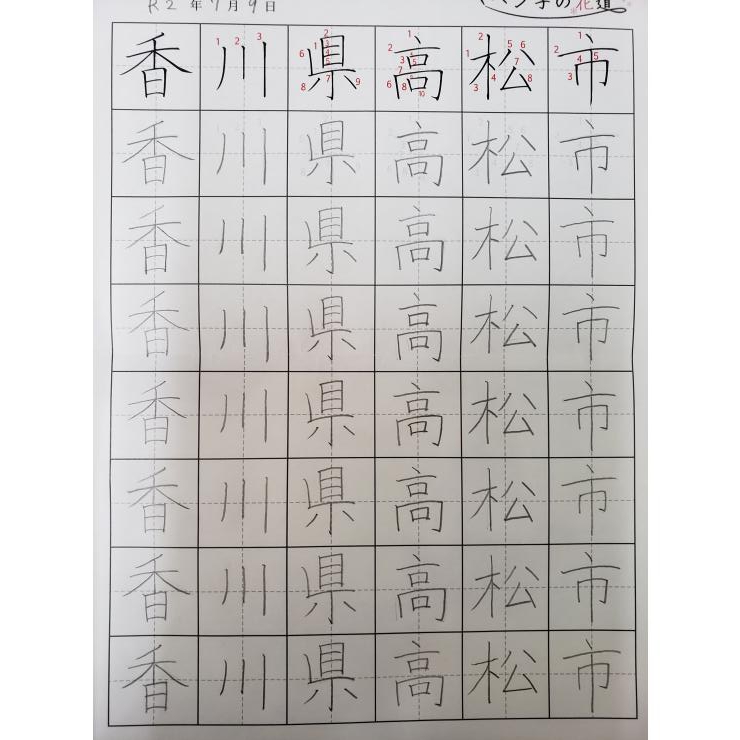 R2年7月9日 ペン字の花道
香川県高松市
香川県高松市
香川県高松市
香川県高松市
香川県高松市
香川県高松市
香川県高松市
香川県高松市